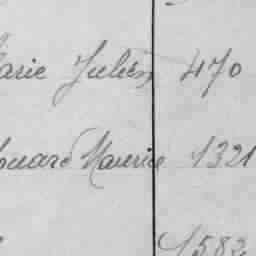 arie Julien 470
ouard Maurice 1321
1582